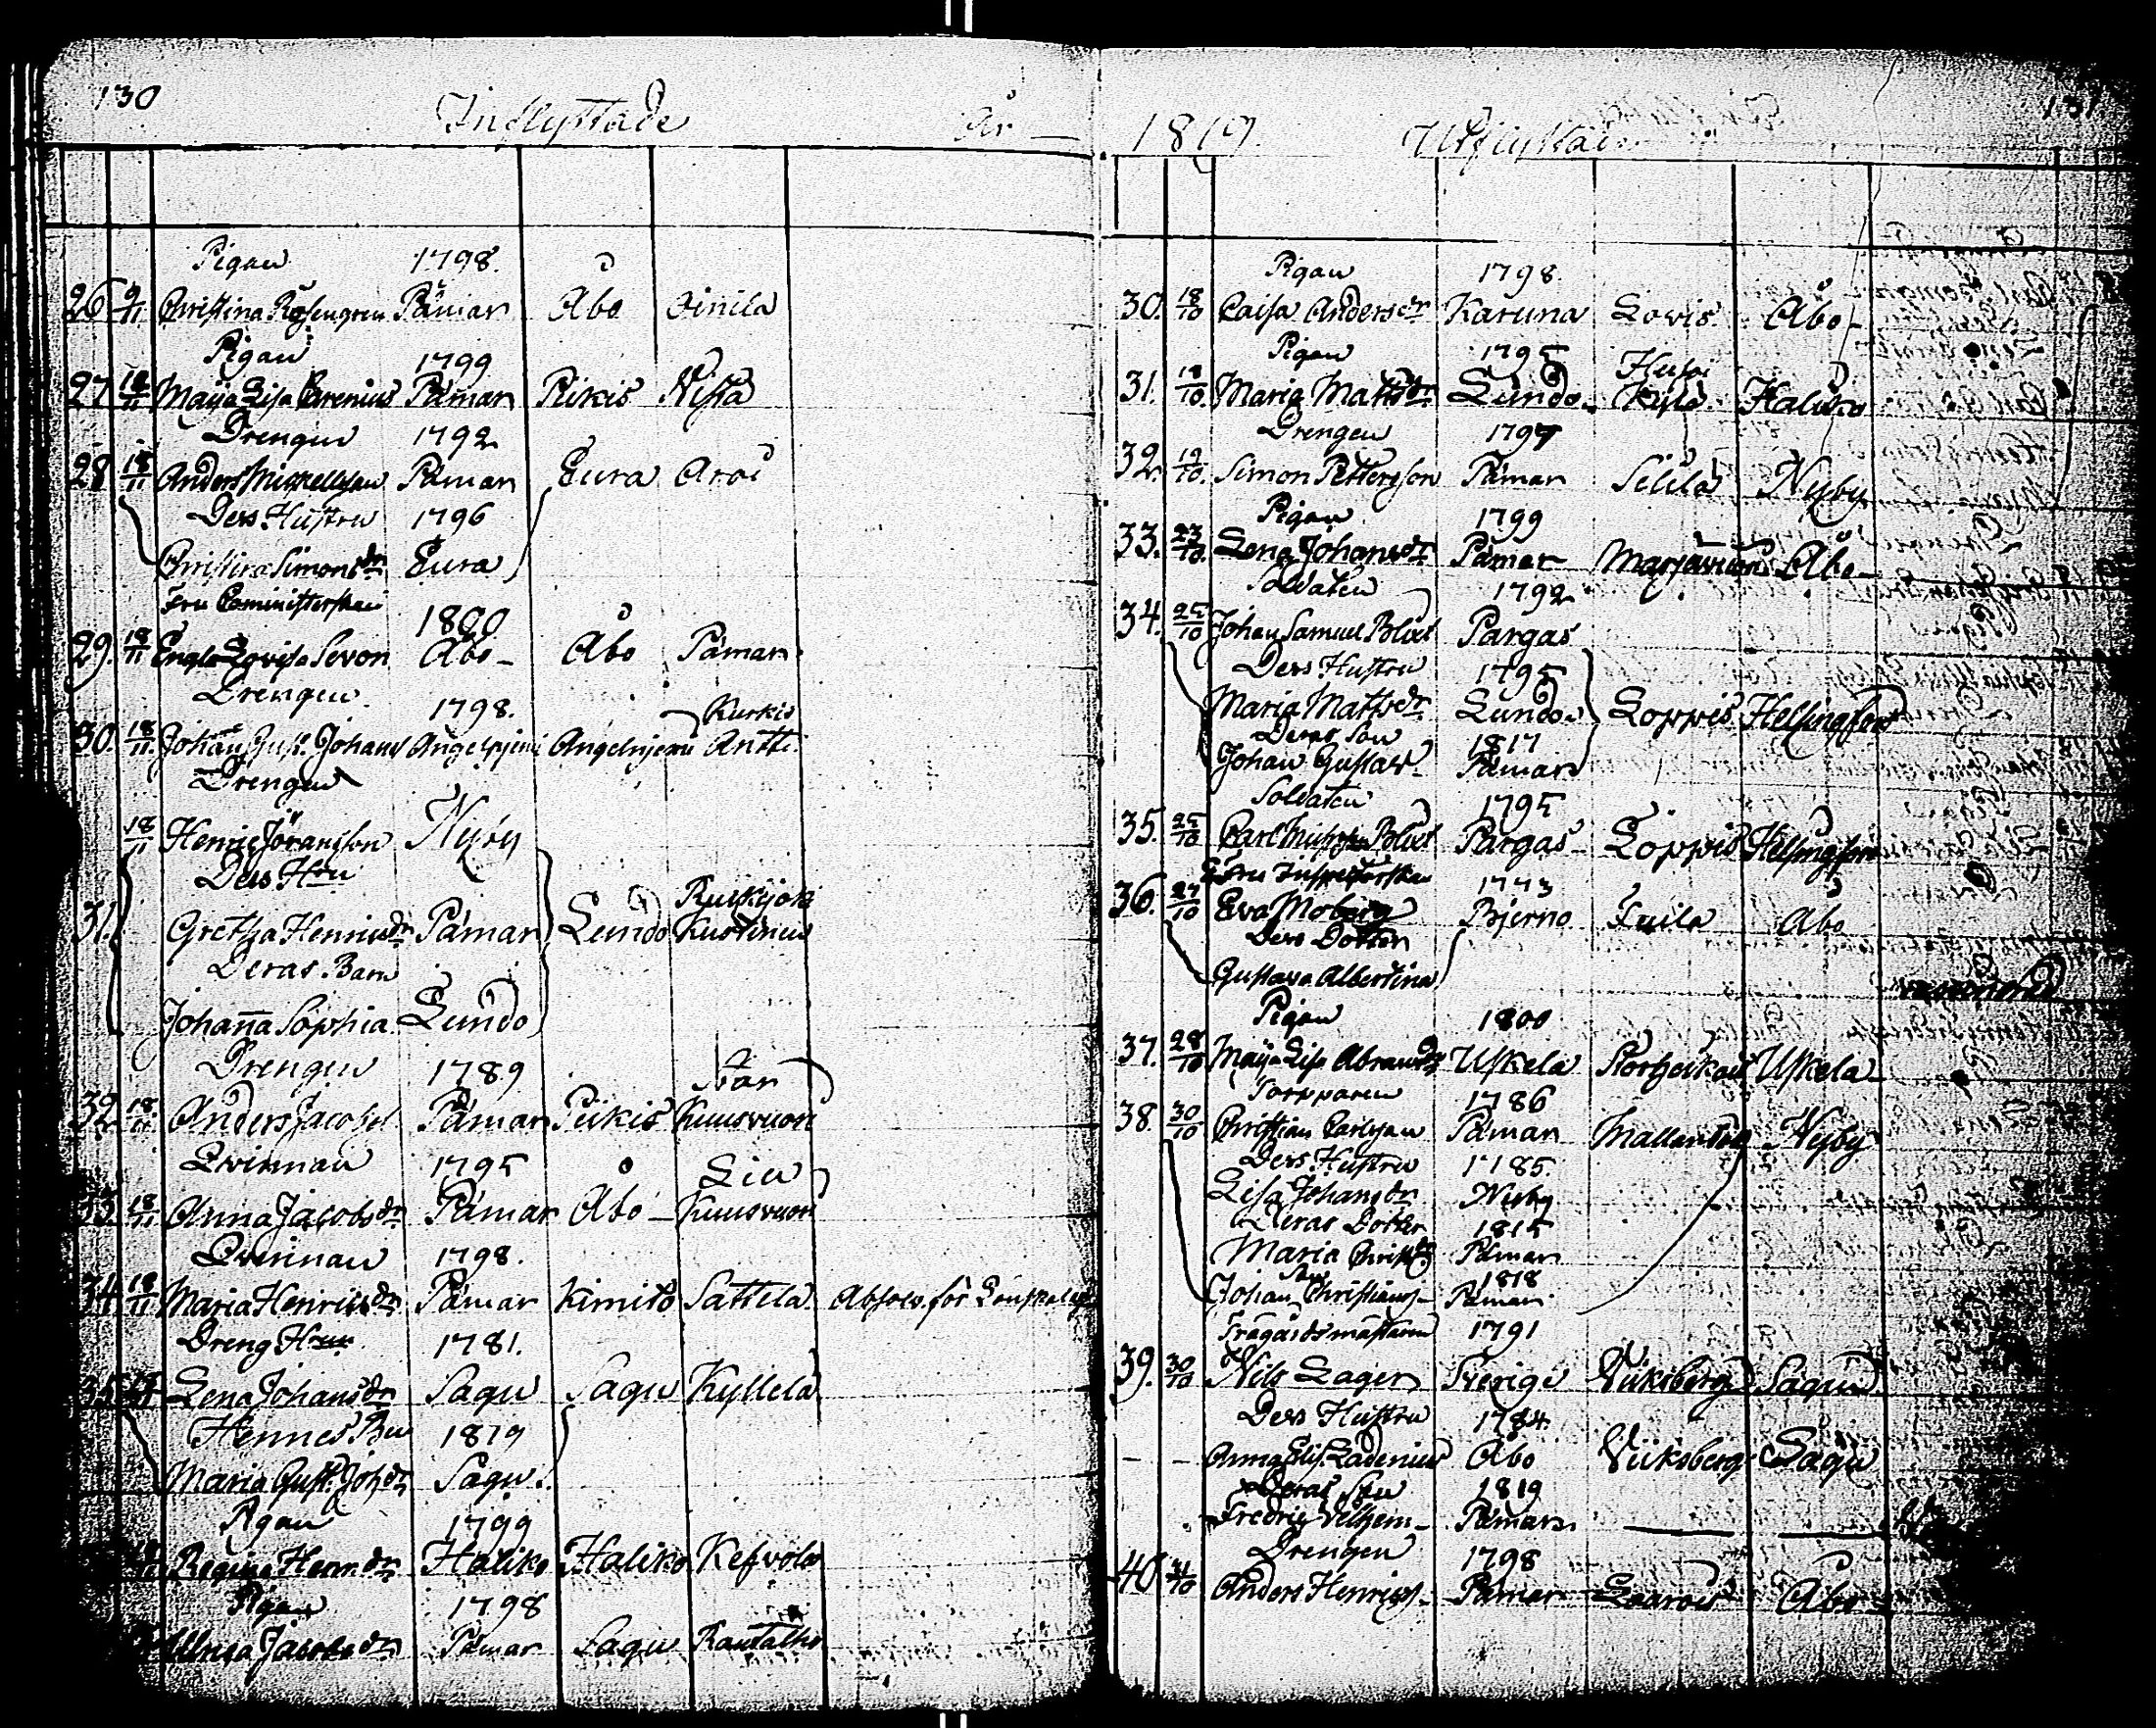 130
Inflyttade
År
Pigan 1798.
26 9/11 Christina Rosengren Påmar Åbo Oinila
Pigan 1799
27 18/11 Maija Lisa Pamar Pikis Nista
Drengen 1792
28 18/11 Anders Mickellsson Påmar Eura Aroi
Dess Hustru 1796
Christina Simonsdr Eura
Fru Comministerskan 1800
29. 18/11 Engla Lovisa Sevon Åbo Åbo Pamar
Drengen 1798. Kurkis
30. 18/11 Johan Gust. Johans Angelnjemi Angelnjemi Antti
Drengen
18/11 Henric Jöransson Nyby
Dess Hru
31. Gretha Henricsdr Påmar Lundo
Deras Barn
Johanna Sophia Lundo
Drengen 1789
32 18/11 Anders Jacobs Påmar Pikis Kuusvuori
Qvinnan 1795
33 18/11 Anna Jacobsdr Påmar Åbo Kuusvuori
Qvinnan 1798.
34 18/11 Maria Henricsdr Påmar Kimito Sattela Absolv. för
Dreng Hru 1781.
35 Lena Johansdr Sagu Sagu Kyllela
Hennes 1819
Maria Gust. Johdr Sagu.
Pigan 1799
Regina Henrdr Haliko Haliko Kefvola
Pigan 1798
Ulrica Jacobsdr Pamar Sagu Rantalho
1819. Utflyttade
131
Pigan 1798.
30. 18/10 Caisa Andersdr Karuna Lovis Åbo
Pigan 1795
31. 18/10 Maria Mattsdr Lundo Kylä Haliko
Drengen 1797
32. 19/10 Simon Pettersson Påmar Silila Nyby
Pigan 1799
33. 23/10 Lena Johansdr Pamar Åbo
Soldaten 1792
34. 25/10 Johan Samuel Pargas
Dess Hustru 1795
Maria Mattsdr Lundo Loppis Helsingfors
Deras Son 1817
Johan Gustav Påmar
Soldaten 1795
35. 25/10 Carl Pargas Loppis Helsingfors
Fru Inspectorskan 1773
36. 27/10 Eva Moberg Bjerno Åbo
Dess Dotter
Gustava Albertina
Pigan 1800
37. 28/10 Maija Lisa Abramsdr Uskela Uskela
Torpparen 1786
38. 30/10 Christian Carlsson Påmar Nyby
Dess Hustru 1785.
Lisa Johansdr Nyby
Deras Dotter 1815
Maria Christdr Påmar
Son 1818
Johan Christians Påmar
Trägårdsmästaren 1791
39. 30/10 Nils Lager Sverige Viiksberg Sagu
Dess Hustru 1784
Anna Elis. Ladenius Åbo Viiksberg Sagu
Deras Son 1819
Fredric Vilhelm Påmar
Drengen 1798
40. 31/10 Anders Henrics Pamar Åbo